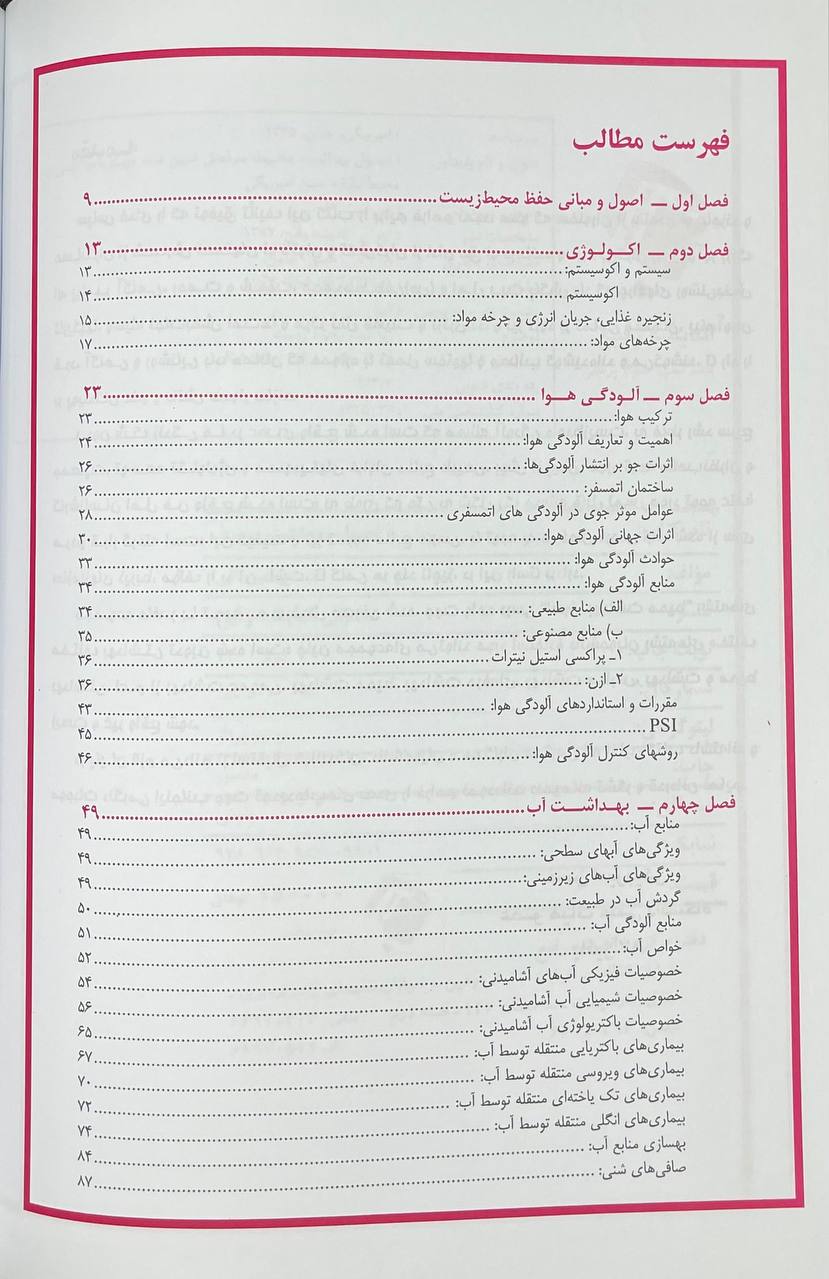 فهرست مطالب
فصل اول ــ اصول و مبانی حفظ محیط‌زیست................................................................۹
فصل دوم ــ اکـولـوژی................................................................۱۳
سیستم و اکوسیستم:................................................................۱۳
اکوسیستم ................................................................۱۴
زنجیره غذایی، جریان انرژی و چرخه مواد: ................................................................۱۵
چرخه‌های مواد:................................................................۱۷
فصل سوم ــ آلـودگـی هـوا ................................................................۲۳
ترکیب هوا:................................................................۲۳
اهمیت و تعاریف آلودگی هوا:................................................................۲۴
اثرات جو بر انتشار آلودگی‌ها:................................................................۲۶
ساختمان اتمسفر: ................................................................۲۶
عوامل موثر جوی در آلودگی های اتمسفری ................................................................۲۸
اثرات جهانی آلودگی هوا:................................................................۳۰
حوادث آلودگی هوا: ................................................................۳۳
منابع آلودگی هوا:................................................................۳۴
الف) منابع طبیعی: ................................................................۳۴
ب) منابع مصنوعی: ................................................................۳۵
۱ـ پراکسی استیل نیترات................................................................۳۶
۲ـ ازن:................................................................۳۶
مقررات و استانداردهای آلودگی هوا: ................................................................۴۳
PSI ................................................................۴۵
روشهای کنترل آلودگی هوا:................................................................۴۶
فصل چهارم ــ بهـداشـــت آب................................................................۴۹
منابع آب:................................................................۴۹
ویژگی‌های آبهای سطحی: ................................................................۴۹
ویژگی‌های آب‌های زیرزمینی:................................................................۴۹
گردش آب در طبیعت: ................................................................۵۰
منابع آلودگی آب: ................................................................۵۱
خواص آب:................................................................۵۲
خصوصیات فیزیکی آب‌های آشامیدنی: ................................................................۵۴
خصوصیات شیمیایی آب آشامیدنی: ................................................................۵۶
خصوصیات باکتریولوژی آب آشامیدنی: ................................................................۶۵
بیماری‌های باکتریایی منتقله توسط آب: ................................................................۶۷
بیماری‌های ویروسی منتقله توسط آب: ................................................................۷۰
بیماری‌های تک یاخته‌ای منتقله توسط آب: ................................................................۷۲
بیماری‌های انگلی منتقله توسط آب: ................................................................۷۴
بهسازی منابع آب: ................................................................۸۴
صافی‌های شنی: ................................................................۸۷